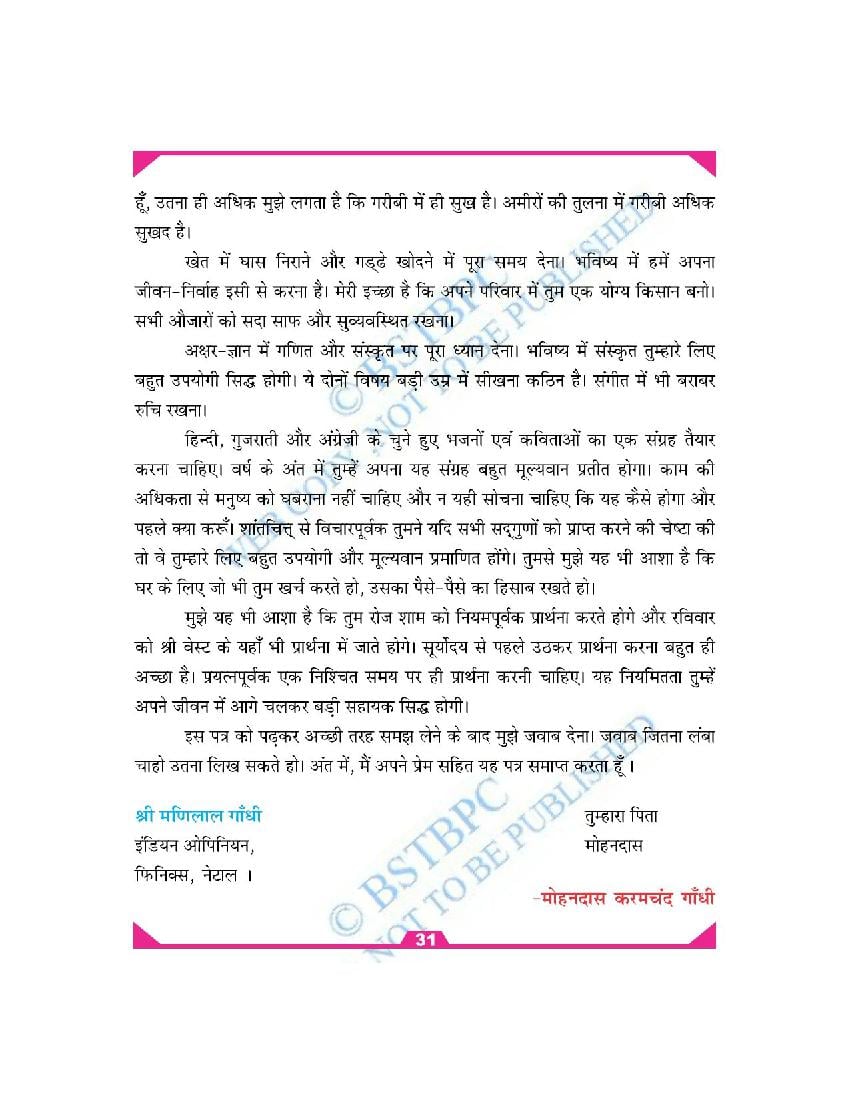 हूँ, उतना ही अधिक मुझे लगता है कि गरीबी में ही सुख है। अमीरों की तुलना में गरीबी अधिक
सुखद है।
खेत में घास निराने और गड्ढे खोदने में पूरा समय देना। भविष्य में हमें अपना
जीवन-निर्वाह इसी से करना है। मेरी इच्छा है कि अपने परिवार में तुम एक योग्य किसान बनो।
सभी औजारों को सदा साफ और सुव्यवस्थित रखना।
अक्षर-ज्ञान में गणित और संस्कृत पर पूरा ध्यान देना। भविष्य में संस्कृत तुम्हारे लिए
बहुत उपयोगी सिद्ध होगी। ये दोनों विषय बड़ी उम्र में सीखना कठिन है। संगीत में भी बराबर
रुचि रखना।
हिन्दी, गुजराती और अंग्रेज़ी के चुने हुए भजनों एवं कविताओं का एक संग्रह तैयार
करना चाहिए। वर्ष के अंत में तुम्हें अपना यह संग्रह बहुत मूल्यवान प्रतीत होगा। काम की
अधिकता से मनुष्य को घबराना नहीं चाहिए और न यही सोचना चाहिए कि यह कैसे होगा और
पहले क्या करूँ। शांतचित्त् से विचारपूर्वक तुमने यदि सभी सद्‌गुणों को प्राप्त करने की चेष्टा की
तो वे तुम्हारे लिए बहुत उपयोगी और मूल्यवान प्रमाणित होंगे। तुमसे मुझे यह भी आशा है कि
घर के लिए जो भी तुम खर्च करते हो, उसका पैसे-पैसे का हिसाब रखते हो।
मुझे यह भी आशा है कि तुम रोज शाम को नियमपूर्वक प्रार्थना करते होगे और रविवार
को श्री वेस्ट के यहाँ भी प्रार्थना में जाते होगे। सूर्योदय से पहले उठकर प्रार्थना करना बहुत ही
अच्छा है। प्रयत्नपूर्वक एक निश्चित समय पर ही प्रार्थना करनी चाहिए। यह नियमितता तुम्हें
अपने जीवन में आगे चलकर बड़ी सहायक सिद्ध होगी।
इस पत्र को पढ़कर अच्छी तरह समझ लेने के बाद मुझे जवाब देना। जवाब जितना लंबा
चाहो उतना लिख सकते हो। अंत में, मैं अपने प्रेम सहित यह पत्र समाप्त करता हूँ ।
श्री मणिलाल गाँधी
इंडियन ओपिनियन,
फिनिक्स, नेटाल ।
तुम्हारा पिता
मोहनदास
-मोहनदास करमचंद गाँधी
31
© BSTBPC
NOT TO BE PUBLISHED
© BSTBPC
NOT TO BE PUBLISHED